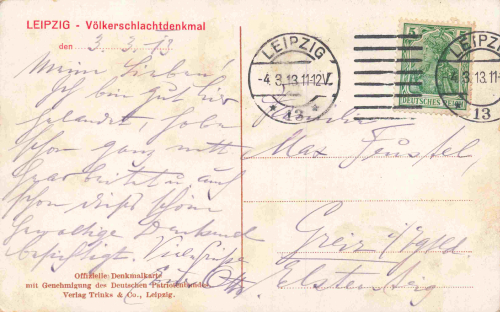 LEIPZIG - Völkerschlachtdenkmal
den 3.3.13
Meine Lieben!
Ich bin gut hier
gelandet, habe
schon ganz nett
gearbeitet u. auch
schon dieses schöne
gewaltige Denkmal
besichtigt. Viele Grüße
Otto
Offizielle Denkmalkarte
mit Genehmigung des Deutschen Patriotenbundes
Verlag Trinks & Co., Leipzig.
LEIPZIG
-4.3.13.11-12V.
* 13 *
5
DEUTSCHES REICH
LEIPZIG
-4.3.13.11-
13
Familie
Max
Greiz
Elstersteig